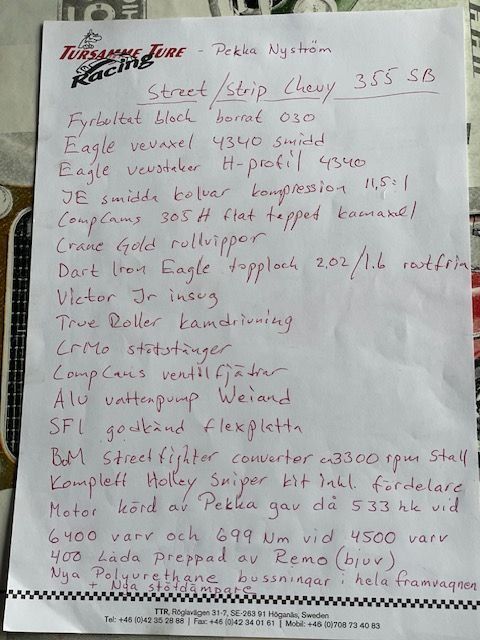 TURSAMME TURE
Racing
- Pekka Nyström
Street/Strip Chevy 355 SB
Fyrbultat block borrat 030
Eagle vevaxel 4340 smidd
Eagle vevstaker H-profil 4340
JE smidda kolvar kompression 11,5:1
CompCams 305H flat tappet kamaxel
Crane Gold rullvippor
Dart Iron Eagle topplock 2,02/1.6 rostfria
Victor Jr insug
True Roller kamdrivning
CrMo stötstänger
CompCams ventilfjädrar
Alu vattenpump Weiand
SFI godkänd flexplatta
B&M Streetfighter converter ca 3300 rpm Stall
Komplett Holley Sniper kit inkl. fördelare
Motor körd av Pekka gav då 533 hk vid
6400 varv och 699 Nm vid 4500 varv
400 Låda preppad av Remo (bjuv)
Nya Polyurethane bussningar i hela framvagnen
+ Nya stötdämpare
TTR, Röglavägen 31-7, SE-263 91 Höganäs, Sweden
Tel: +46 (0)42 35 28 88 | Fax: +46 (0)42 34 01 61 | Mobil: +46 (0)708 73 40 83